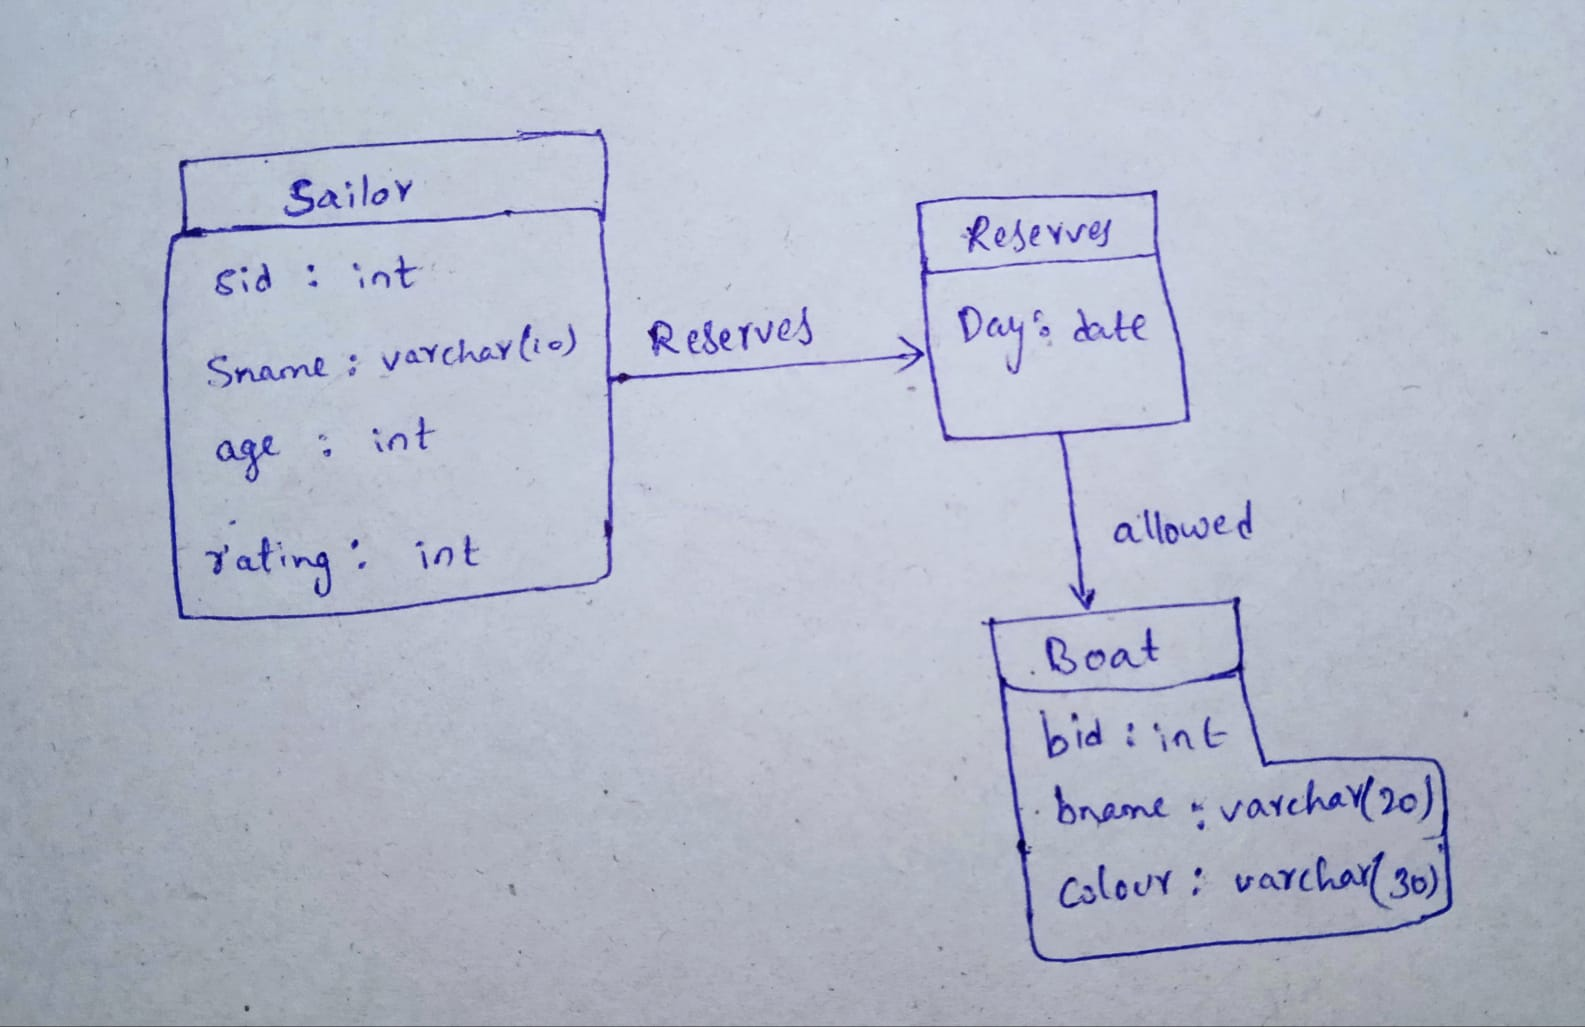 Sailor
sid : int
Sname : varchar(10)
age : int
rating : int
Reserves
Reserves
Day : date
allowed
Boat
bid : int
bname : varchar(20)
colour : varchar(30)